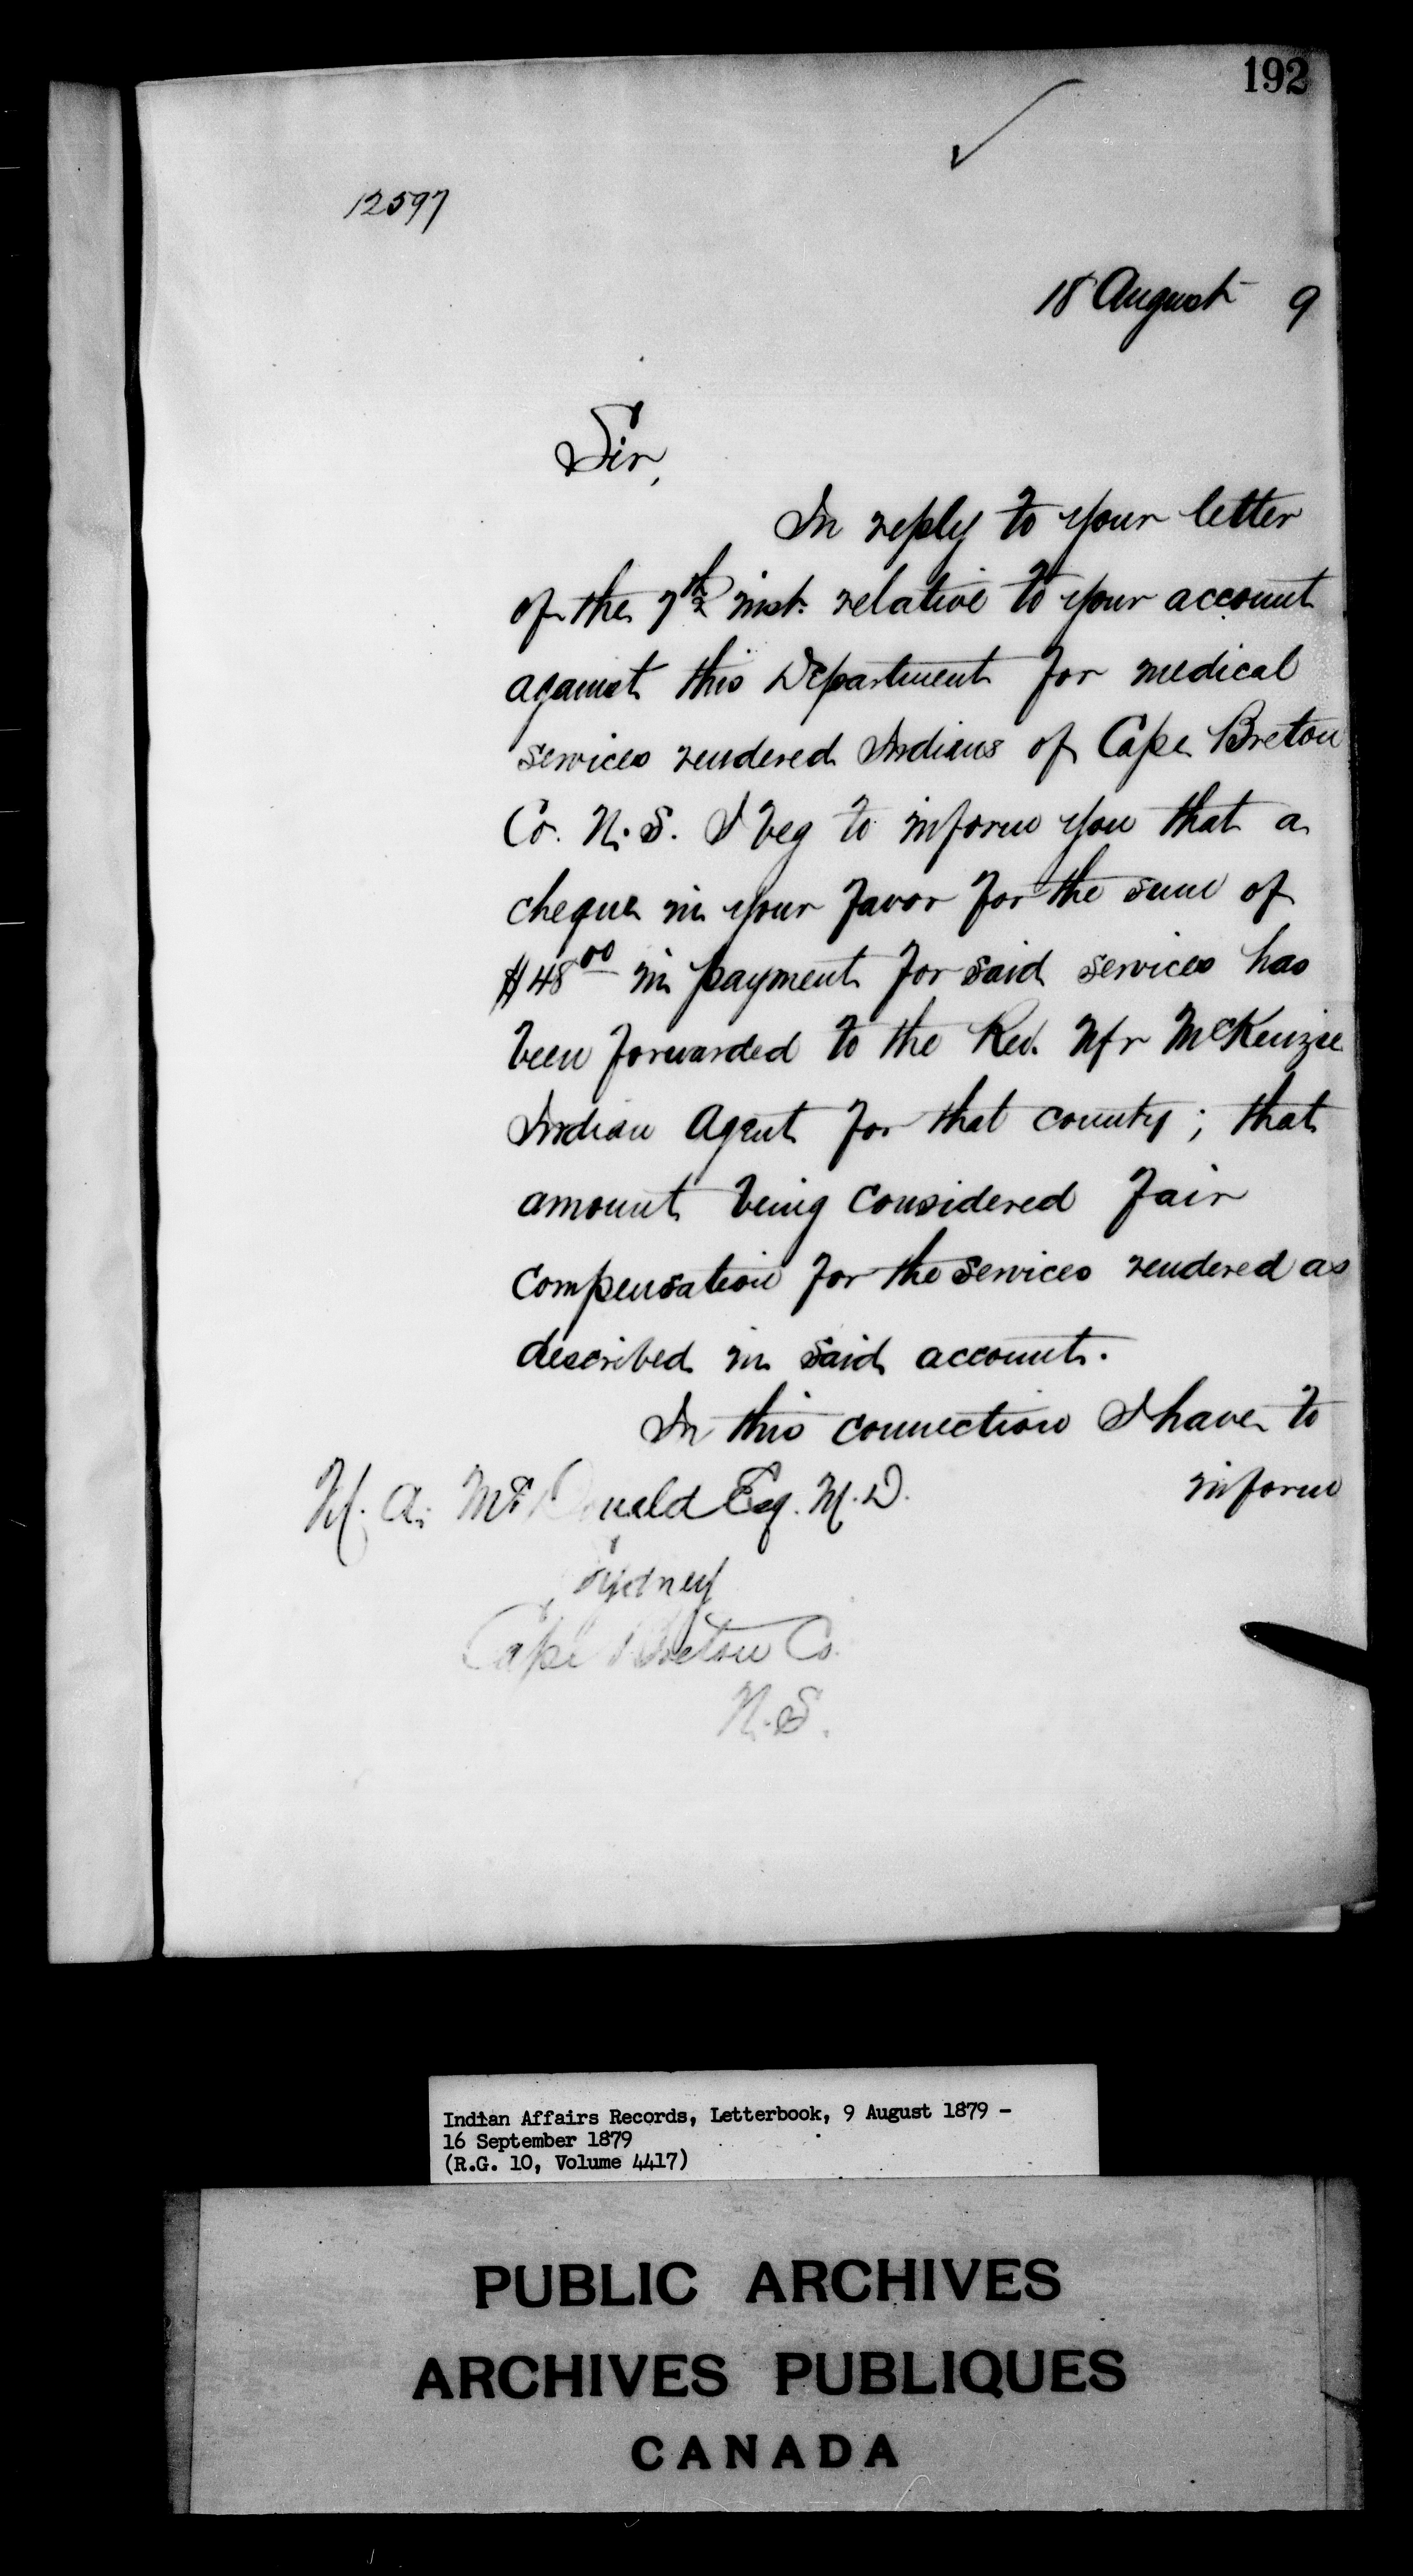 192
12597
18 August 9
Sir,
In reply to your letter
of the 7th inst. relative to your account
against this Department for medical
services rendered Indians of Cape Breton
Co. N.S. I beg to inform you that a
cheque in your favor for the sum of
$48.00 in payment for said services has
been forwarded to the Rev. Mr McKenzie
Indian Agent for that county; that
amount being considered fair
compensation for the services rendered as
described in said account.
In this connection I have to
inform
M. A. McDonald Esq. M.D.
Sydney
Cape Breton Co.
N.S.
Indian Affairs Records, Letterbook, 9 August 1879 -
16 September 1879
(R.G. 10, Volume 4417)
PUBLIC ARCHIVES
ARCHIVES PUBLIQUES
CANADA